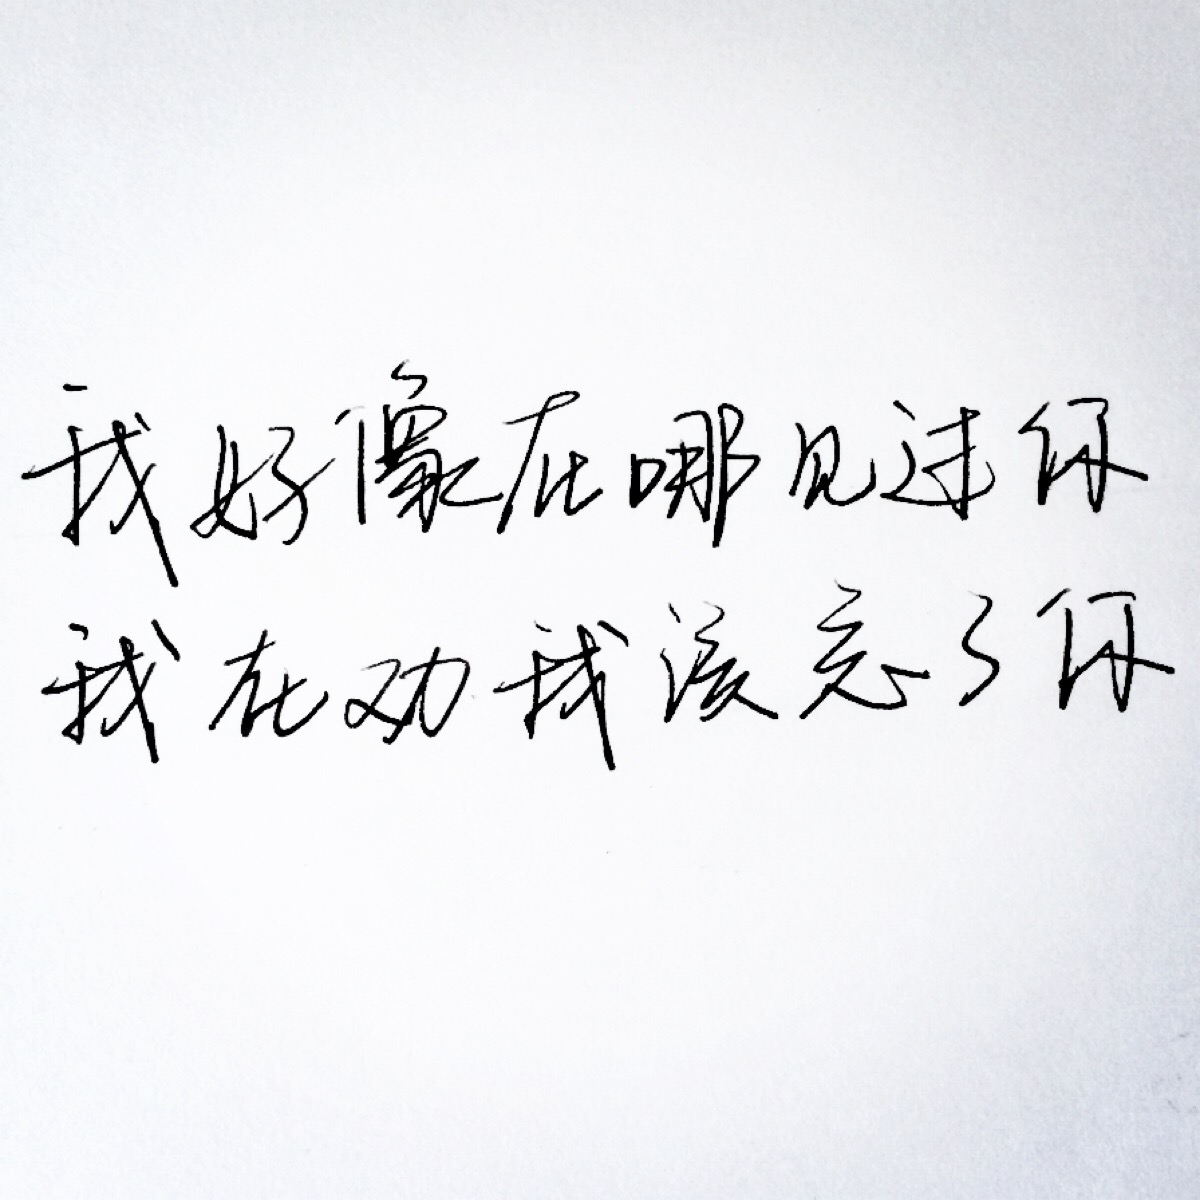 我好像在哪见过你
我在劝我该忘了你